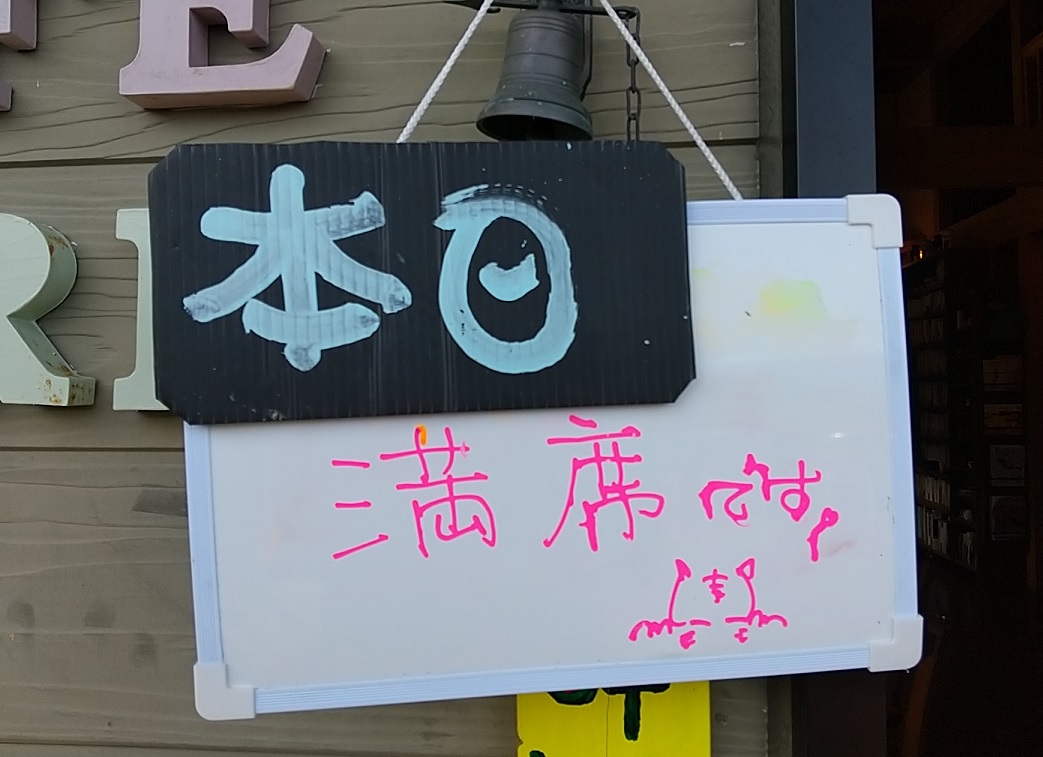 E
RI
本日
満席です。